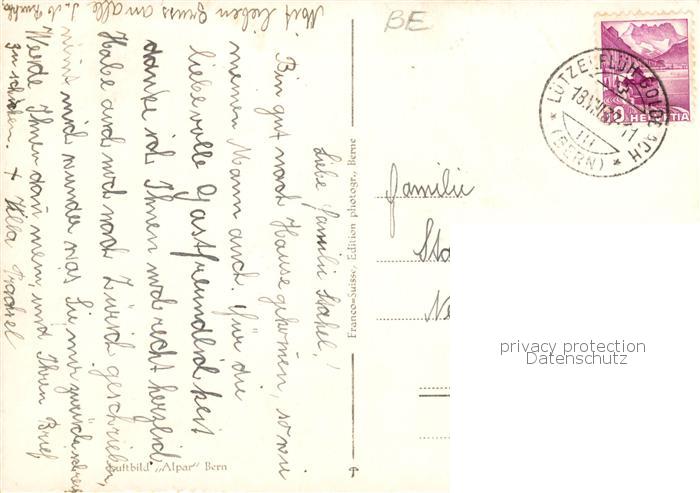 Liebe Familie Stahel!
Bin gut nach Hause gekommen, sowei
meinen Mann auch. Für die
liebevolle Gastfreundlichkeit
danke ich Ihnen noch recht herzlich
Habe auch noch nach Zürich geschrieben,
nimt mich wunder was Sie mir zurückschreiben
Werde Ihnen dan mein und Ihren Brief
zu schicken.
Mit lieben Gruss an alle
BE
Familie
Sta
Franco-Suisse, Edition photogr., Berne
Luftbild „Alpar" Bern
LÜTZELFLÜH-GOLDBACH
(BERN)
III
10 HELVETIA
privacy protection
Datenschutz